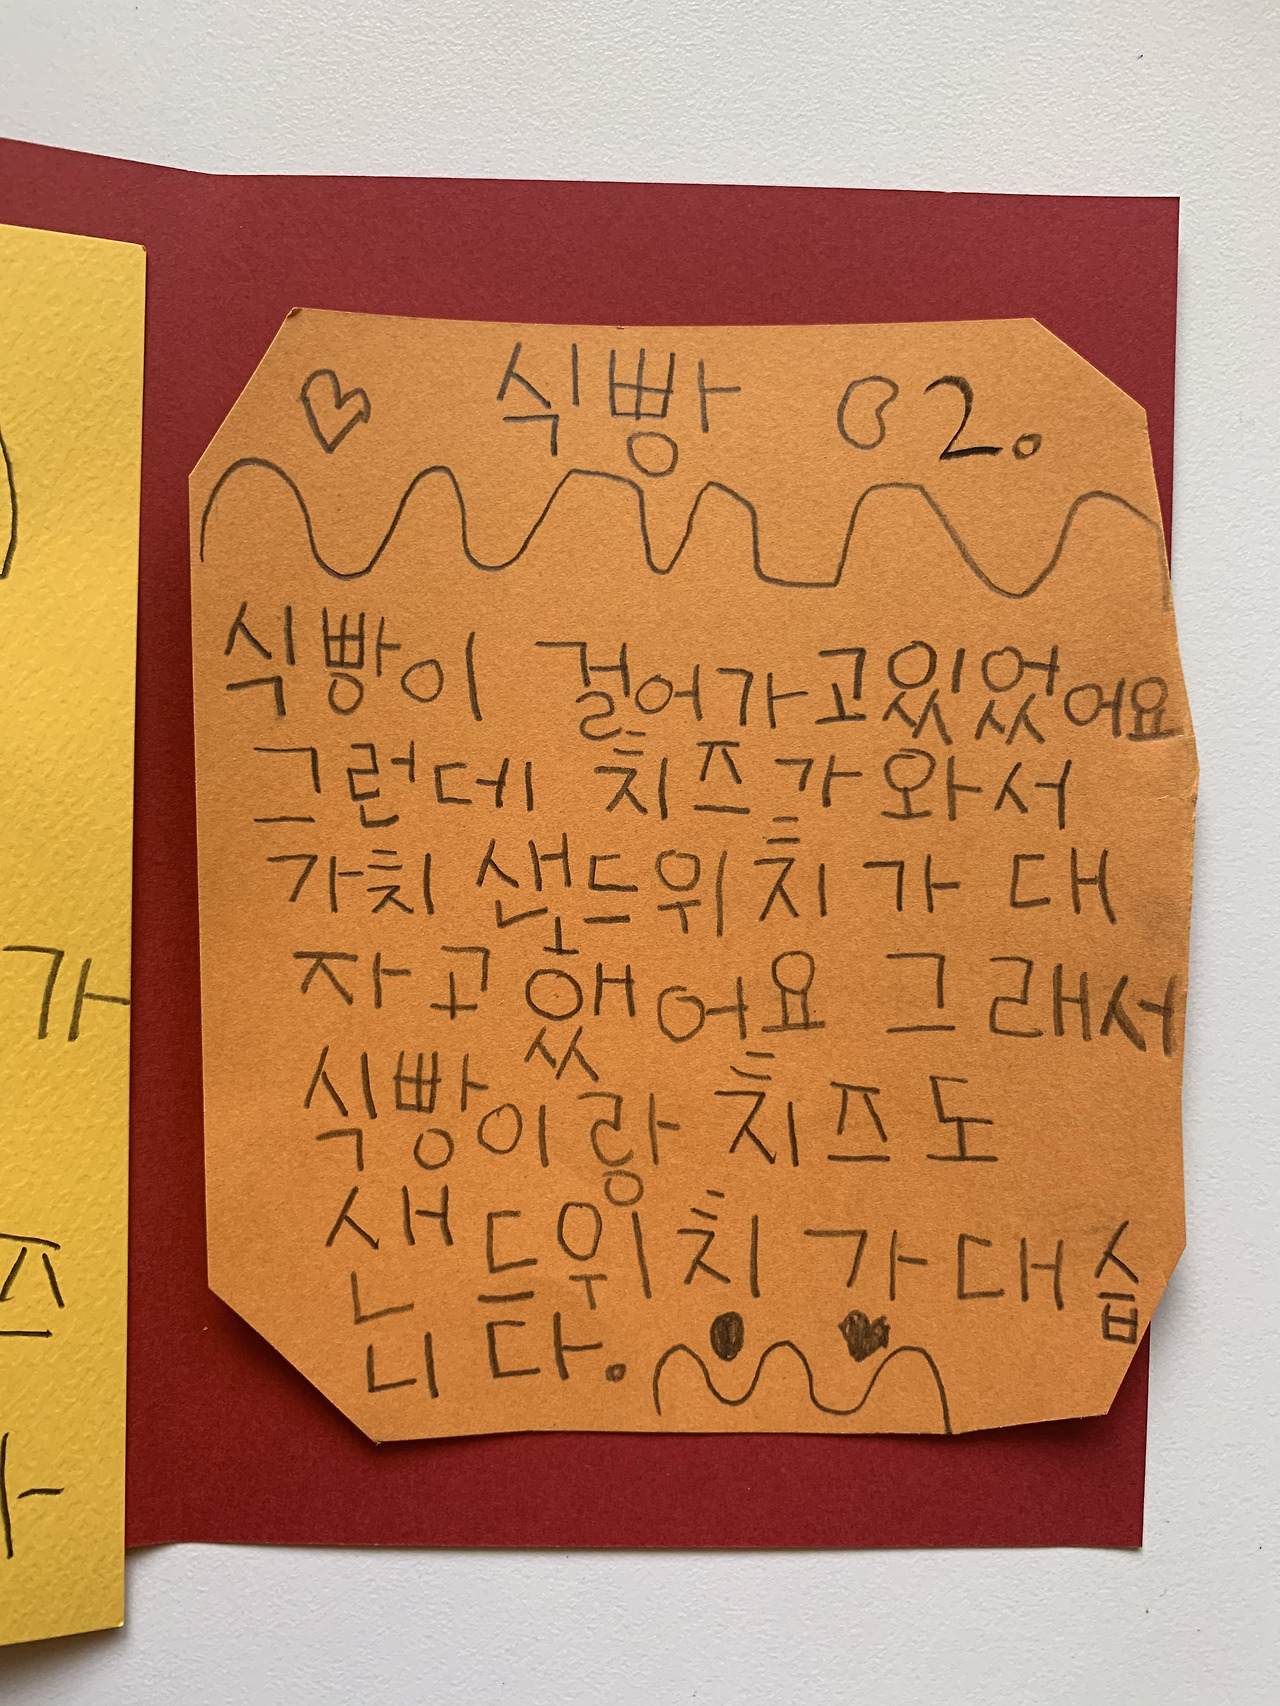 식빵 02.
식빵이 걸어가고있었어요
그런데 치즈가 와서
가치 샌드위치가 대
자고 했어요 그래서
식빵이랑 치즈도
샌드위치가대습
니다.
가
즈